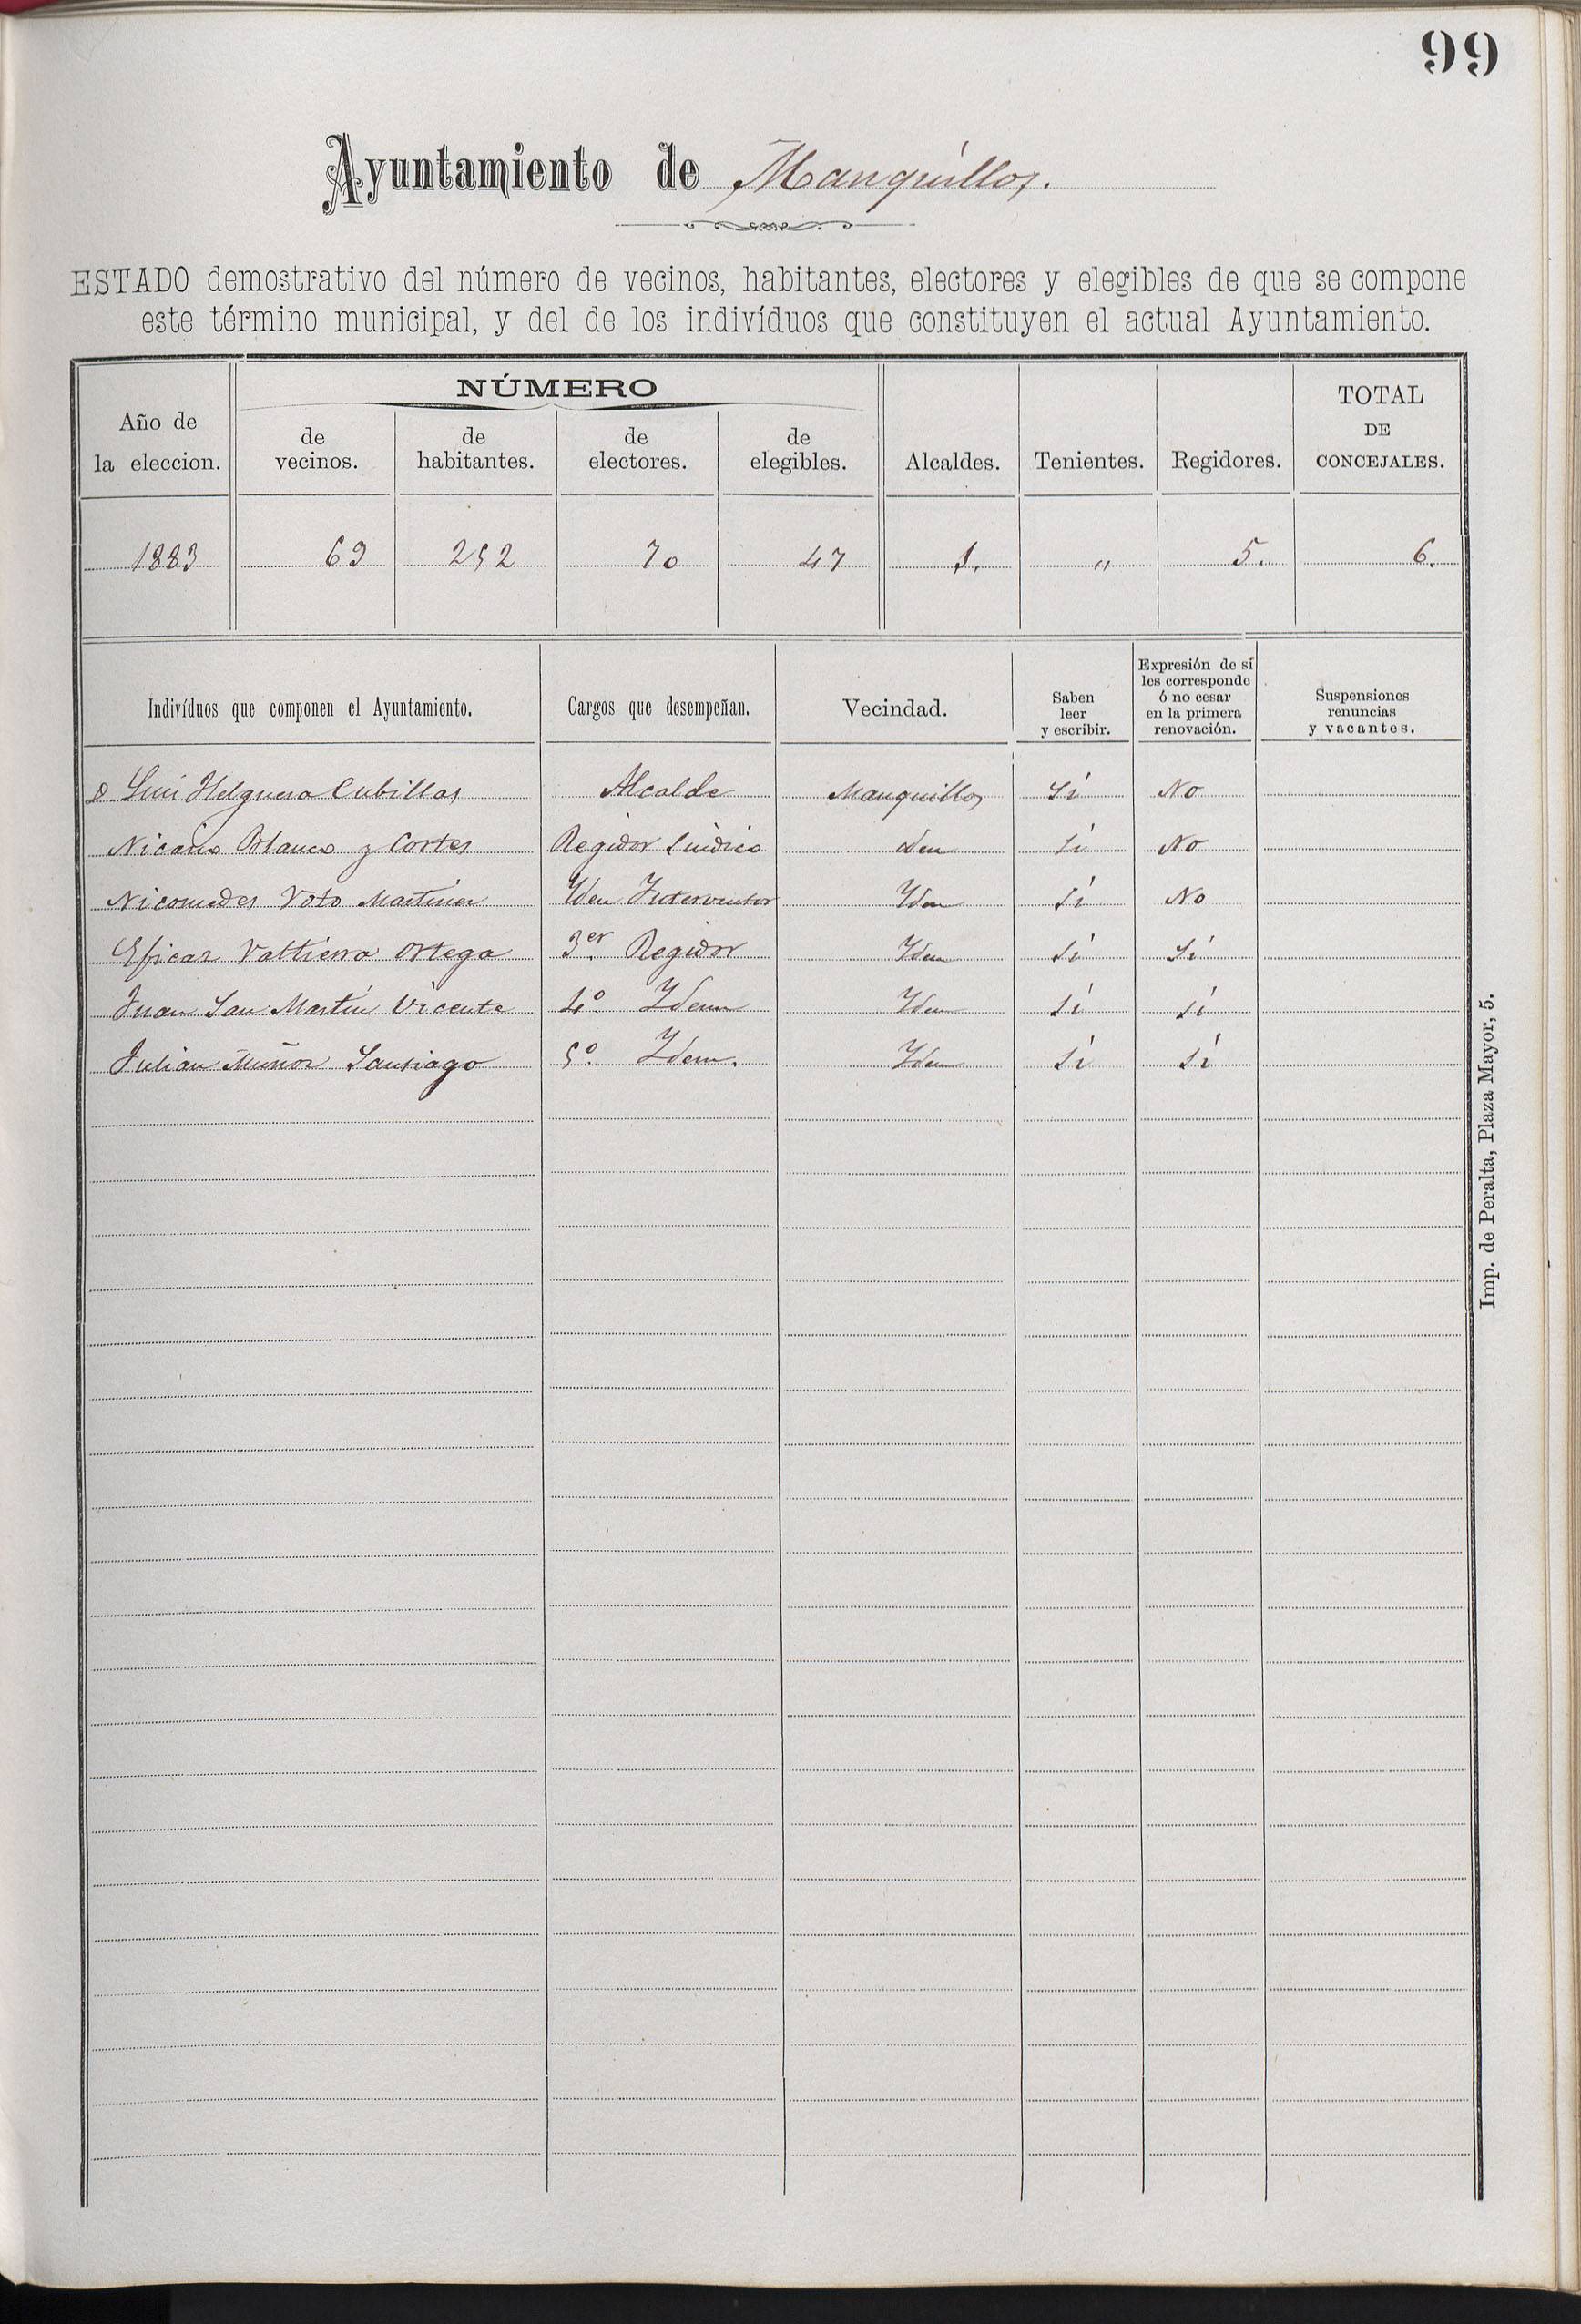 99
Ayuntamiento de Manquillos.
ESTADO demostrativo del número de vecinos, habitantes, electores y elegibles de que se compone
este término municipal, y del de los indivíduos que constituyen el actual Ayuntamiento.
Año de la eleccion. NÚMERO de vecinos. de habitantes. de electores. de elegibles. Alcaldes. Tenientes. Regidores. TOTAL DE CONCEJALES.
1883 69 252 70 47 1. " 5. 6.
Indivíduos que componen el Ayuntamiento. Cargos que desempeñan. Vecindad. Saben leer y escribir. Expresión de sí les corresponde ó no cesar en la primera renovación. Suspensiones renuncias y vacantes.
D Luis Helguera Cubillas Alcalde Manquillos Sí No
Blanco y Cortes Regidor Sindico Idem Sí No
Nicomedes Voto Martinez Idem Interventor Idem Sí No
Eficaz Valtierra Ortega 3er. Regidor Idem Sí Sí
Juan San Martín Vicente 4º. Idem Idem Sí Sí
Julian Muñoz Santiago 5º. Idem. Idem Sí Sí
Imp. de Peralta, Plaza Mayor, 5.